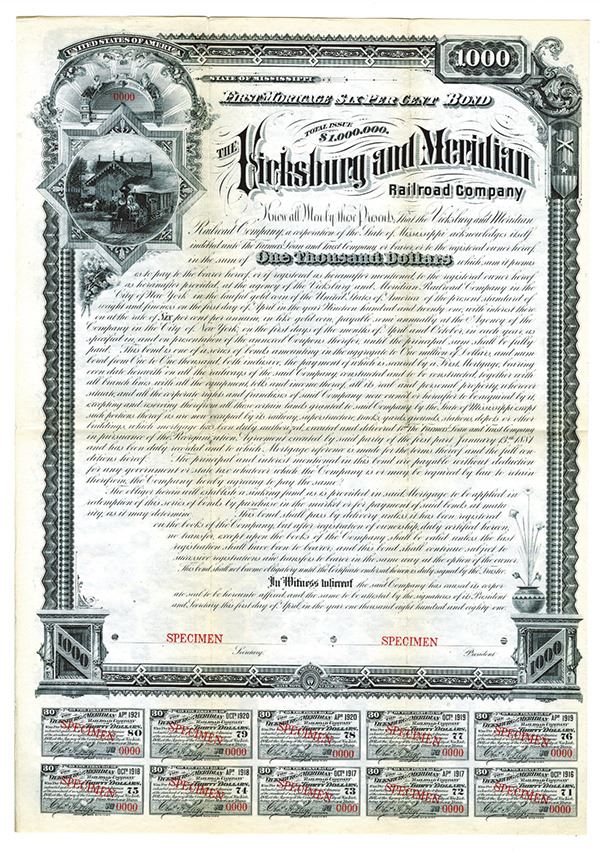 UNITED STATES OF AMERICA
1000
0000
STATE OF MISSISSIPPI
FIRST MORTGAGE SIX PER CENT BOND
TOTAL ISSUE
$1,000,000.
THE Vicksburg and Meridian
Railroad Company
Know all Men by these Presents, That the Vicksburg and Meridian
Railroad Company, a corporation of the State of Mississippi acknowledges itself
indebted unto The Farmers Loan and Trust Company or bearer, or to the registered owner hereof,
in the sum of One Thousand Dollars which sum it promis-
es to pay to the bearer hereof, or if registered as hereinafter mentioned, to the registered owner hereof
as hereinafter provided, at the agency of the Vicksburg and Meridian Railroad Company in the
City of New York in the lawful gold coin of the United States of America of the present standard of
weight and fineness on the first day of April in the year Nineteen hundred and twenty one, with interest there-
on at the rate of Six per cent per annum, in like gold coin, payable semi annually at the Agency of the
Company in the City of New York, on the first days of the months of April and October, in each year, as
specified in, and on presentation of the annexed Coupons therefor, until the principal sum shall be fully
paid. This bond is one of a series of bonds amounting in the aggregate to One million of Dollars, and num-
bered from One to One thousand both inclusive, the payment of which is secured by a First Mortgage, bearing
even date herewith on all the railways of the said Company constructed and to be constructed, together with
all branch lines with all the equipment, tolls and income thereof, all its real and personal property, wherever
situate, and all the corporate rights and franchises of said Company now owned or hereafter to be acquired by it,
excepting and reserving therefrom those certain lands granted to said Company by the State of Mississippi except
such portions thereof as are now occupied by its railway, superstructure, tracks, yards, grounds, stations, depots or other
buildings, which mortgage has been duly authorized, executed and delivered to The Farmers Loan and Trust Company
in pursuance of the Reorganization Agreement executed by said party of the first part January 12th 1881
and has been duly recorded and to which Mortgage reference is made for the terms thereof and the full con-
ditions thereof. The principal and interest mentioned in this bond are payable without deduction
for any government or state tax whatever which the Company is or may be required by law to retain
therefrom, the Company hereby agreeing to pay the same.
The obligor herein will establish a sinking fund as is provided in said Mortgage to be applied in
redemption of this series of bonds by purchase in the market or for payment of said bonds at matu-
rity, as it may determine. This bond shall pass by delivery unless it has been registered
on the books of the Company, but after registration of ownership, duly certified hereon,
no transfer, except upon the books of the Company, shall be valid unless the last
registration shall have been to bearer, and this bond shall continue subject to
successive registrations and transfers to bearer in the same way at the option of the owner.
This bond shall not become obligatory until the Certificate endorsed hereon is duly signed by the Trustee.
In Witness whereof the said Company has caused its corpor-
ate seal to be hereunto affixed, and the same to be attested by the signatures of its President
and Secretary this first day of April, in the year one thousand eight hundred and eighty one.
SPECIMEN
SPECIMEN
Secretary.
President
1000
1000
30 Apl. 1921 80 SPECIMEN 0000
30 Oct. 1920 79 SPECIMEN 0000
30 Apl. 1920 78 SPECIMEN 0000
30 Oct. 1919 77 SPECIMEN 0000
30 Apl. 1919 76 SPECIMEN 0000
30 Oct. 1918 75 SPECIMEN 0000
30 Apl. 1918 74 SPECIMEN 0000
30 Oct. 1917 73 SPECIMEN 0000
30 Apl. 1917 72 SPECIMEN 0000
30 Oct. 1916 71 SPECIMEN 0000